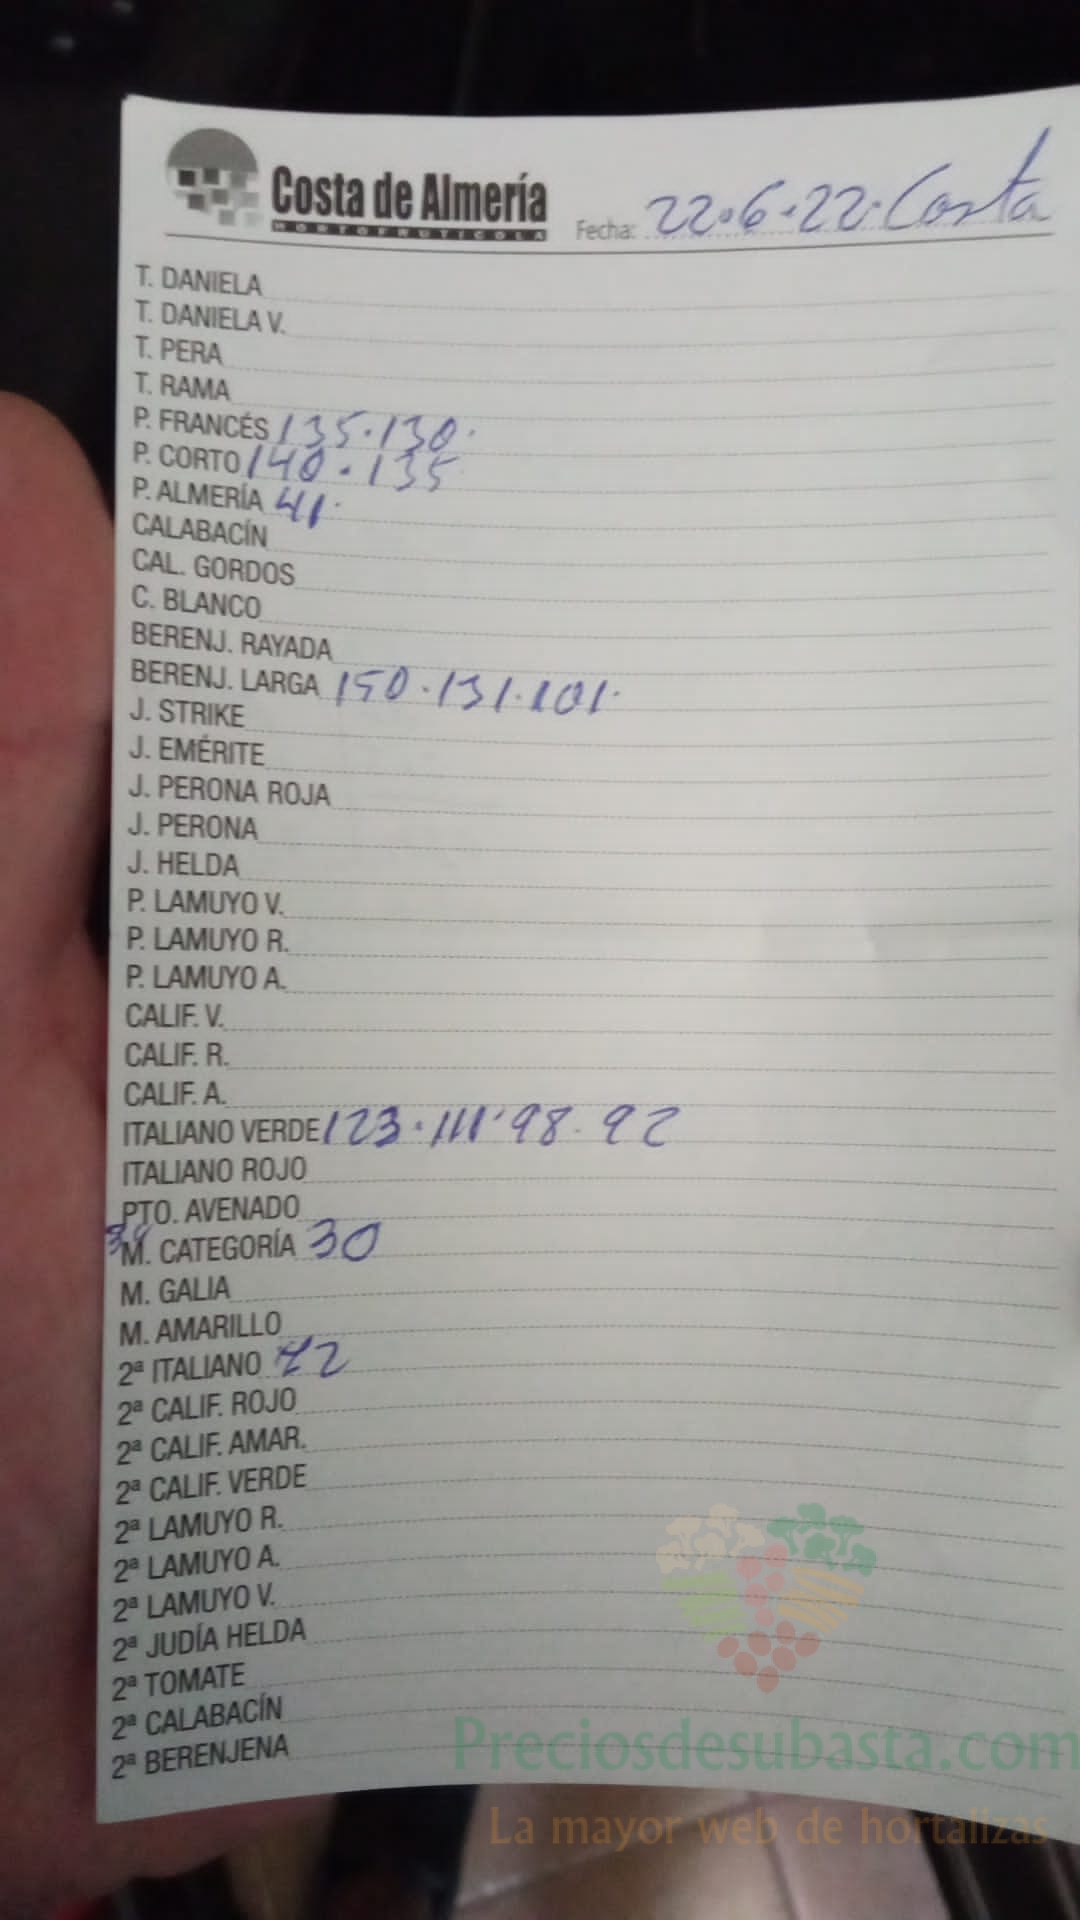 Costa de Almería
HORTOFRUTICOLA
Fecha: 22·6·22· Costa
T. DANIELA
T. DANIELA V.
T. PERA
T. RAMA
P. FRANCÉS 135·130·
P. CORTO 140·135
P. ALMERÍA 41·
CALABACÍN
CAL. GORDOS
C. BLANCO
BERENJ. RAYADA
BERENJ. LARGA 150·131·101·
J. STRIKE
J. EMÉRITE
J. PERONA ROJA
J. PERONA
J. HELDA
P. LAMUYO V.
P. LAMUYO R.
P. LAMUYO A.
CALIF. V.
CALIF. R.
CALIF. A.
ITALIANO VERDE 123·111·98·92
ITALIANO ROJO
PTO. AVENADO
M. CATEGORÍA 30
M. GALIA
M. AMARILLO
2ª ITALIANO
2ª CALIF. ROJO
2ª CALIF. AMAR.
2ª CALIF. VERDE
2ª LAMUYO R.
2ª LAMUYO A.
2ª LAMUYO V.
2ª JUDÍA HELDA
2ª TOMATE
2ª CALABACÍN
2ª BERENJENA
Preciosdesubasta.com
La mayor web de hortalizas